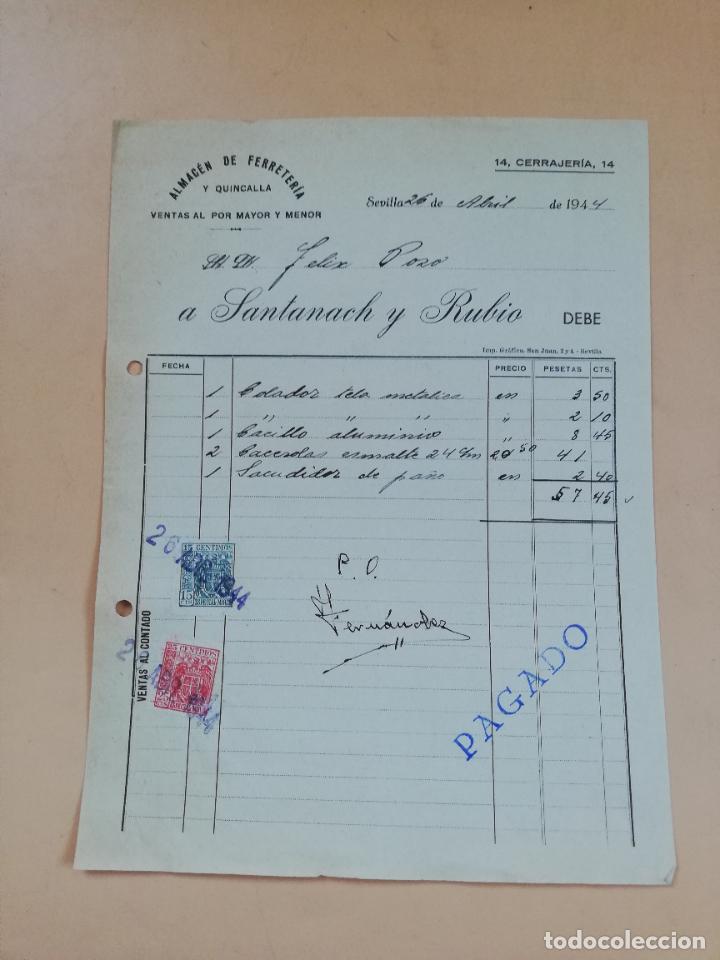 ALMACÉN DE FERRETERÍA
Y QUINCALLA
VENTAS AL POR MAYOR Y MENOR
14, CERRAJERÍA, 14
Sevilla 26 de Abril de 1944
Felix Pozo
a Santanach y Rubio DEBE
Imp. Gráfica, San Juan, 2 y 4 - Sevilla
FECHA PRECIO PESETAS CTS.
1 Colador tela metalica en 3 50
1 " " " " 2 10
1 Cacillo aluminio " 8 45
2 Cacerolas esmalte 24 c/m 20 50 41
1 Sacudidor de paño en 2 40
57 45
26 ABR 1944
15 CENTIMOS
15
P. O.
Fernández
VENTAS AL CONTADO
25 CENTIMOS
25
PAGADO
todocoleccion
todocoleccion.net